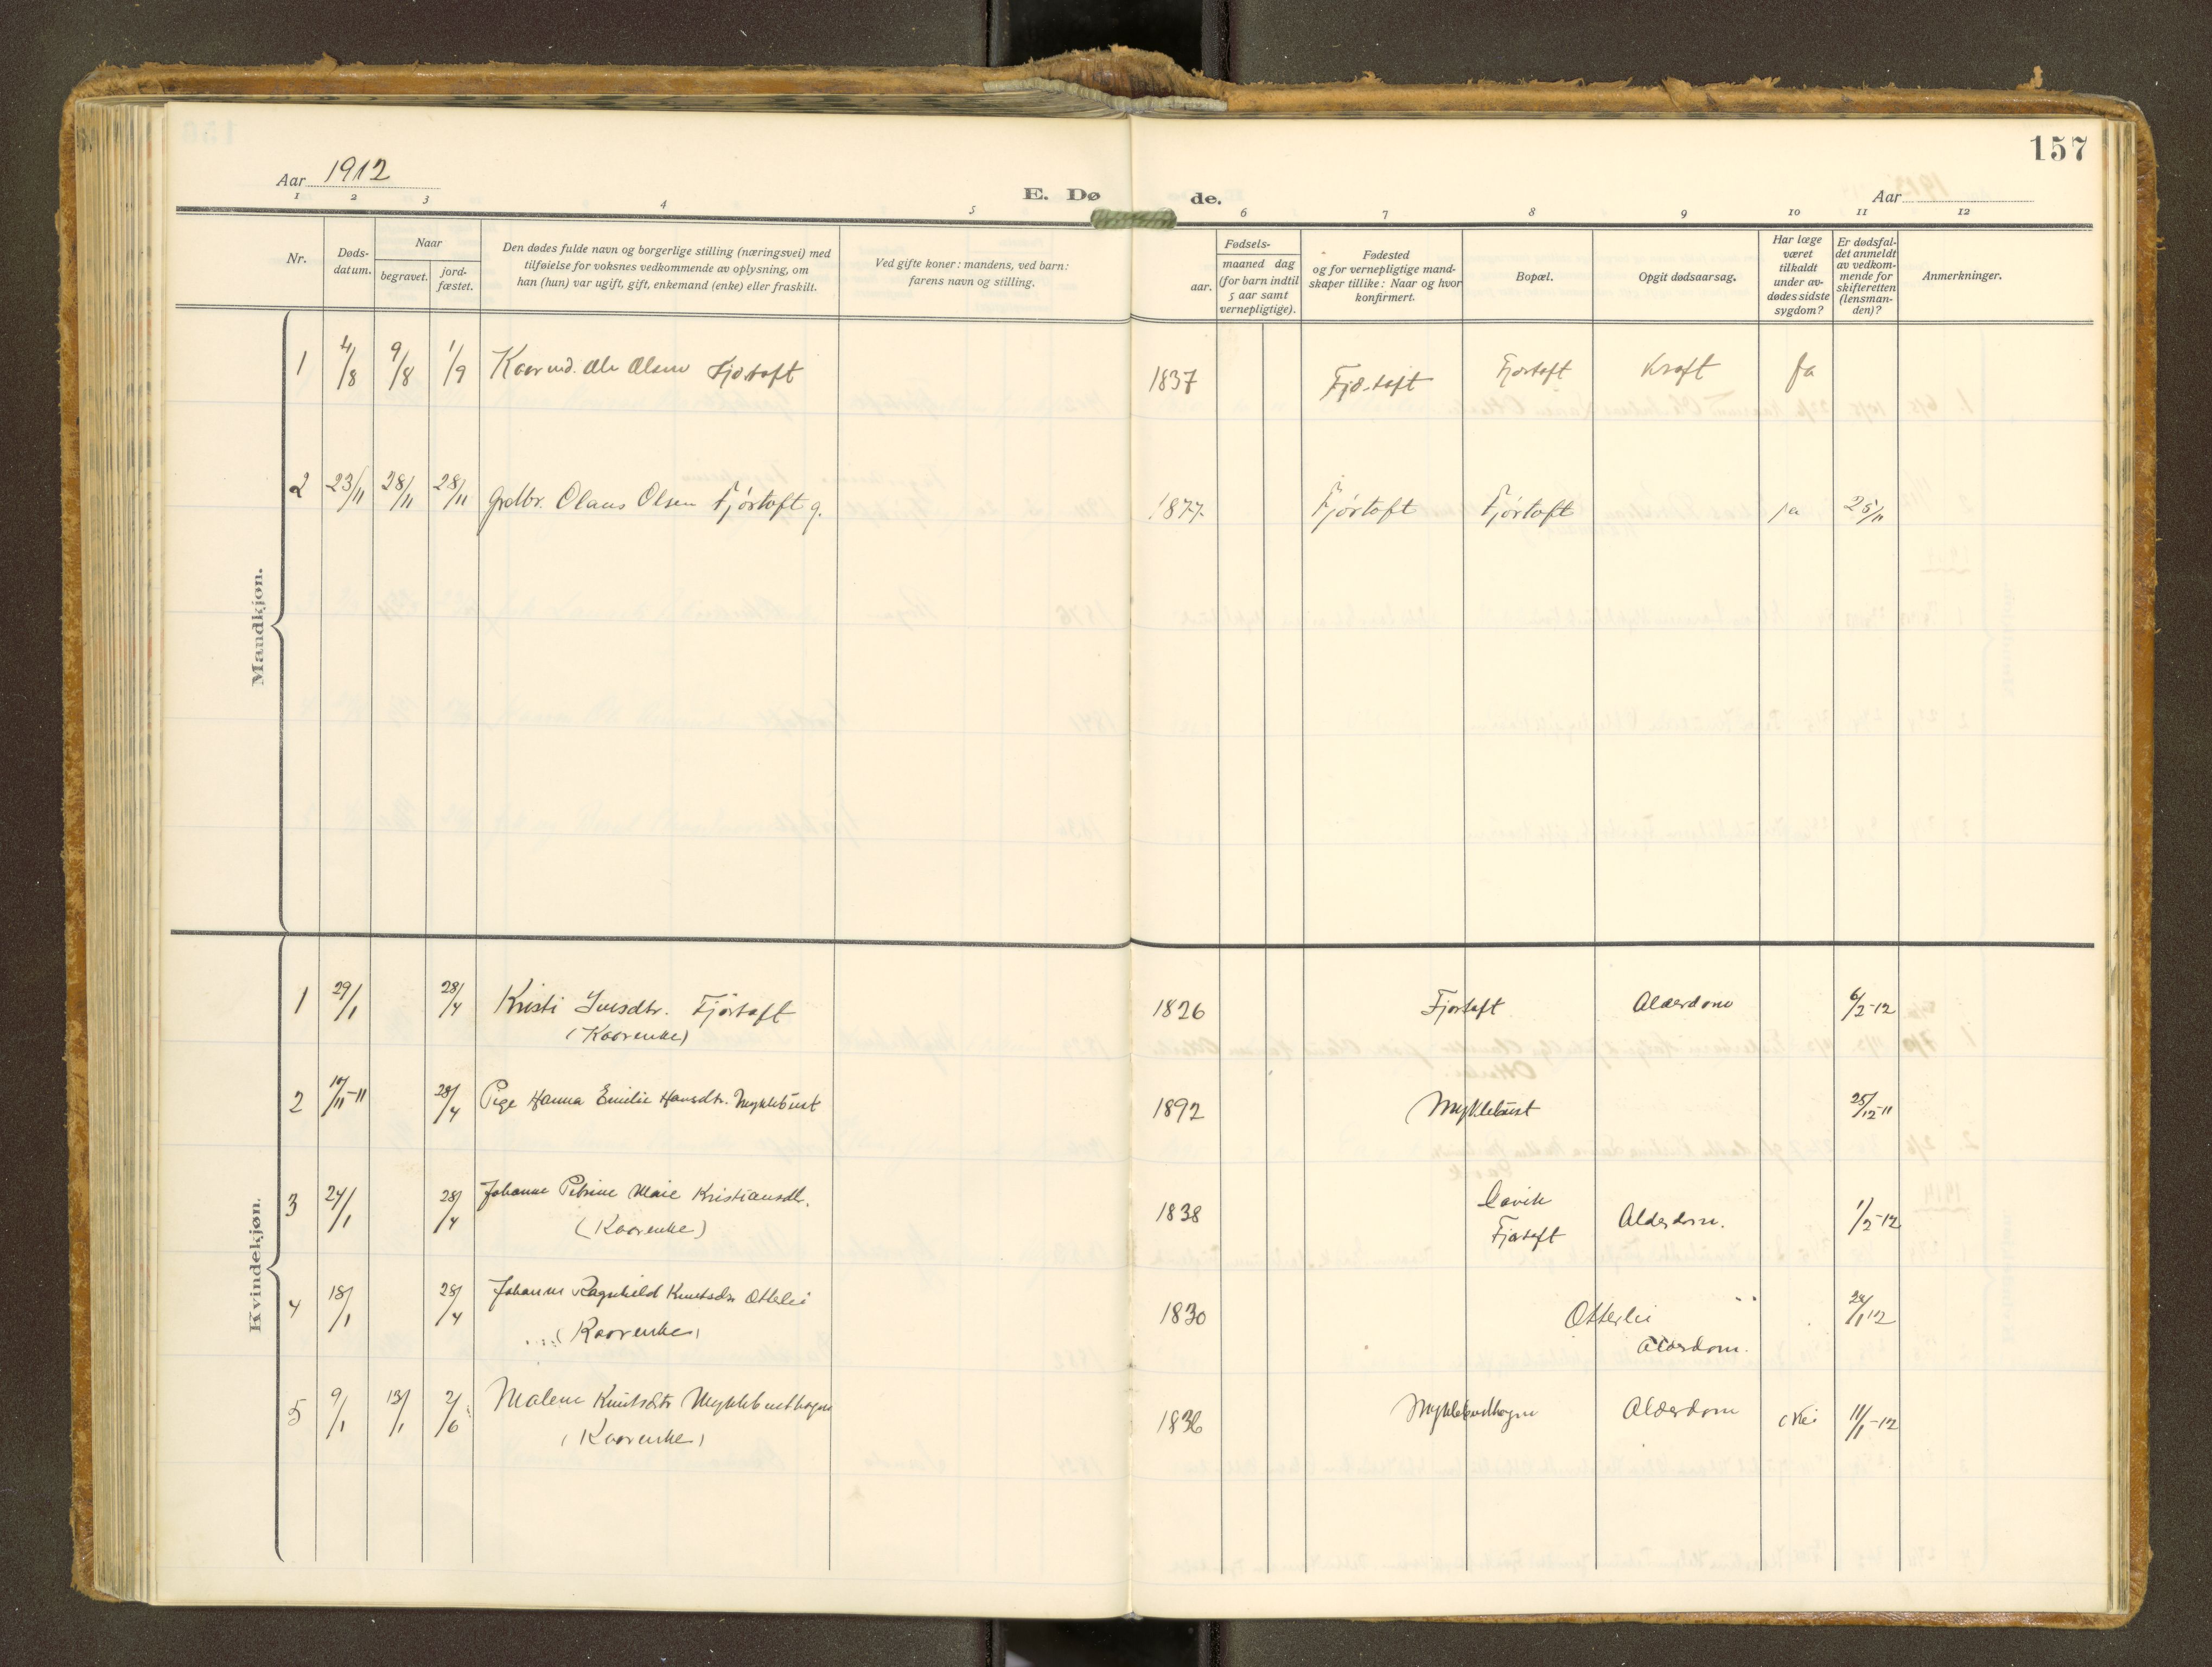 157
Aar 1912
E. Døde.
Aar
1 2 3 4 5 6 7 8 9 10 11 12
Nr.
Døds-
datum.
Naar
begravet.
jord-
fæstet.
Den dødes fulde navn og borgerlige stilling (næringsvei) med
tilføielse for voksnes vedkommende av oplysning, om
han (hun) var ugift, gift, enkemand (enke) eller fraskilt.
Ved gifte koner: mandens, ved barn:
farens navn og stilling.
Fødsels-
aar.
maaned dag
(for barn indtil
5 aar samt
vernepligtige).
Fødested
og for vernepligtige mand-
skaper tillike: Naar og hvor
konfirmert.
Bopæl.
Opgit dødsaarsag.
Har læge
været
tilkaldt
under av-
dødes sidste
sygdom?
Er dødsfal-
det anmeldt
av vedkom-
mende for
skifteretten
(lensman-
den)?
Anmerkninger.
Mandkjøn.
1 4/8 9/8 1/9 Kaarmd. Ole Olsen Fjørtoft 1837 Fjørtoft Fjørtoft Kræft Ja
2 23/11 28/11 28/11 Grdbr. Olaus Olsen Fjørtoft g. 1877 Fjørtoft Fjørtoft ja 25/11
Kvindekjøn.
1 29/1 28/4 Kristi Iversdtr. Fjørtoft 1826 Fjørtoft Alderdom 6/2-12
(Kaarenke)
2 /11-11 28/4 Pige Hanna Emilie Hansdtr. Myklebust 1892 Myklebust 25/12-11
3 24/1 28/4 Johanne Petrine Marie Kristiansdtr. 1838 Fjørtoft Alderdom. 1/2-12
(Kaarenke)
4 18/1 28/4 Johanne Ragnhild Knutsdtr Otterlei 1830 Otterlei 12
(Kaarenke) Alderdom.
5 9/1 13/1 2/6 Malene Knutsdtr Myklebusthagen 1836 Myklebusthagen Alderdom Nei 11/1-12
(Kaarenke)